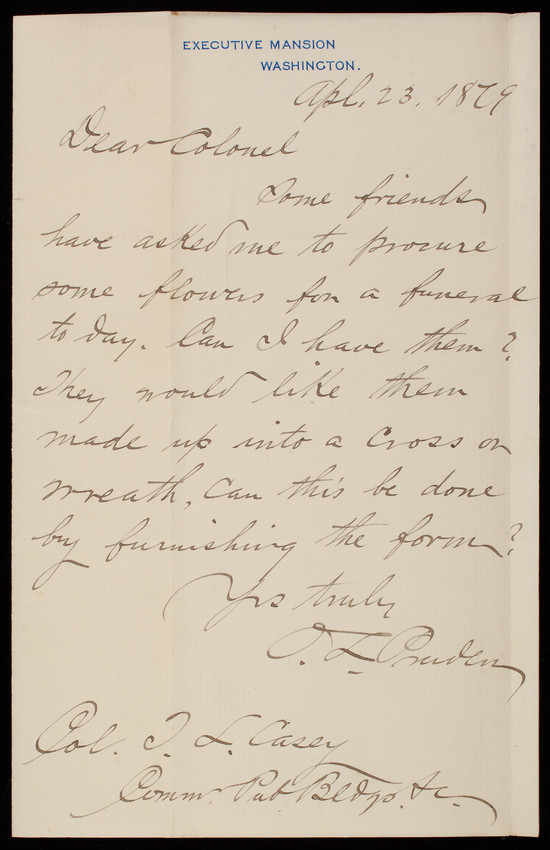 EXECUTIVE MANSION
WASHINGTON.
Apl. 23. 1879
Dear Colonel
Some friends
have asked me to procure
some flowers for a funeral
to day. Can I have them?
They would like them
made up into a cross or
wreath, can this be done
by furnishing the form?
Yrs truly
O. L. Pruden
Col. T. L. Casey
Commr. Pub. Bldgs. &c.